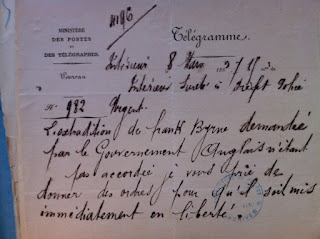 MINISTÈRE
DES POSTES
ET
DES TÉLÉGRAPHES.
Bureau
Télégramme.
Intérieur 8 Mars 188
Intérieur à Préfet Police
N° 982 Urgent.
L'extradition de Frank Byrne demandée
par le Gouvernement Anglais n'étant
pas accordée je vous prie de
donner des ordres pour qu'il soit mis
immédiatement en liberté.